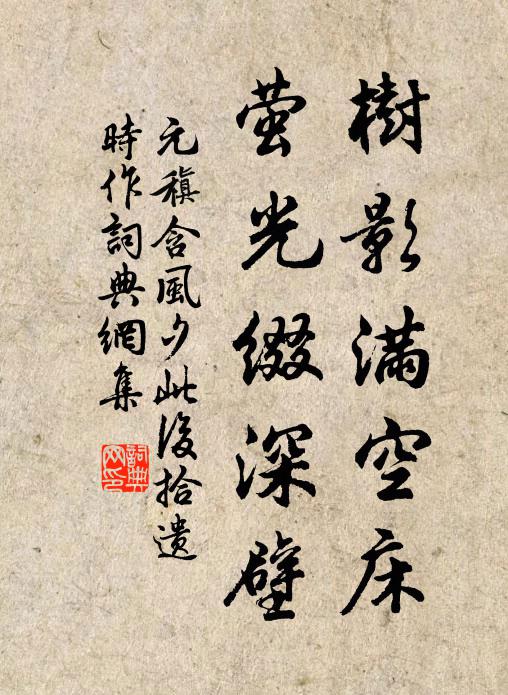 樹影滿空床
萤光綴深壁
元稹含風夕此後拾遺
時作詞典網集
詞典网印